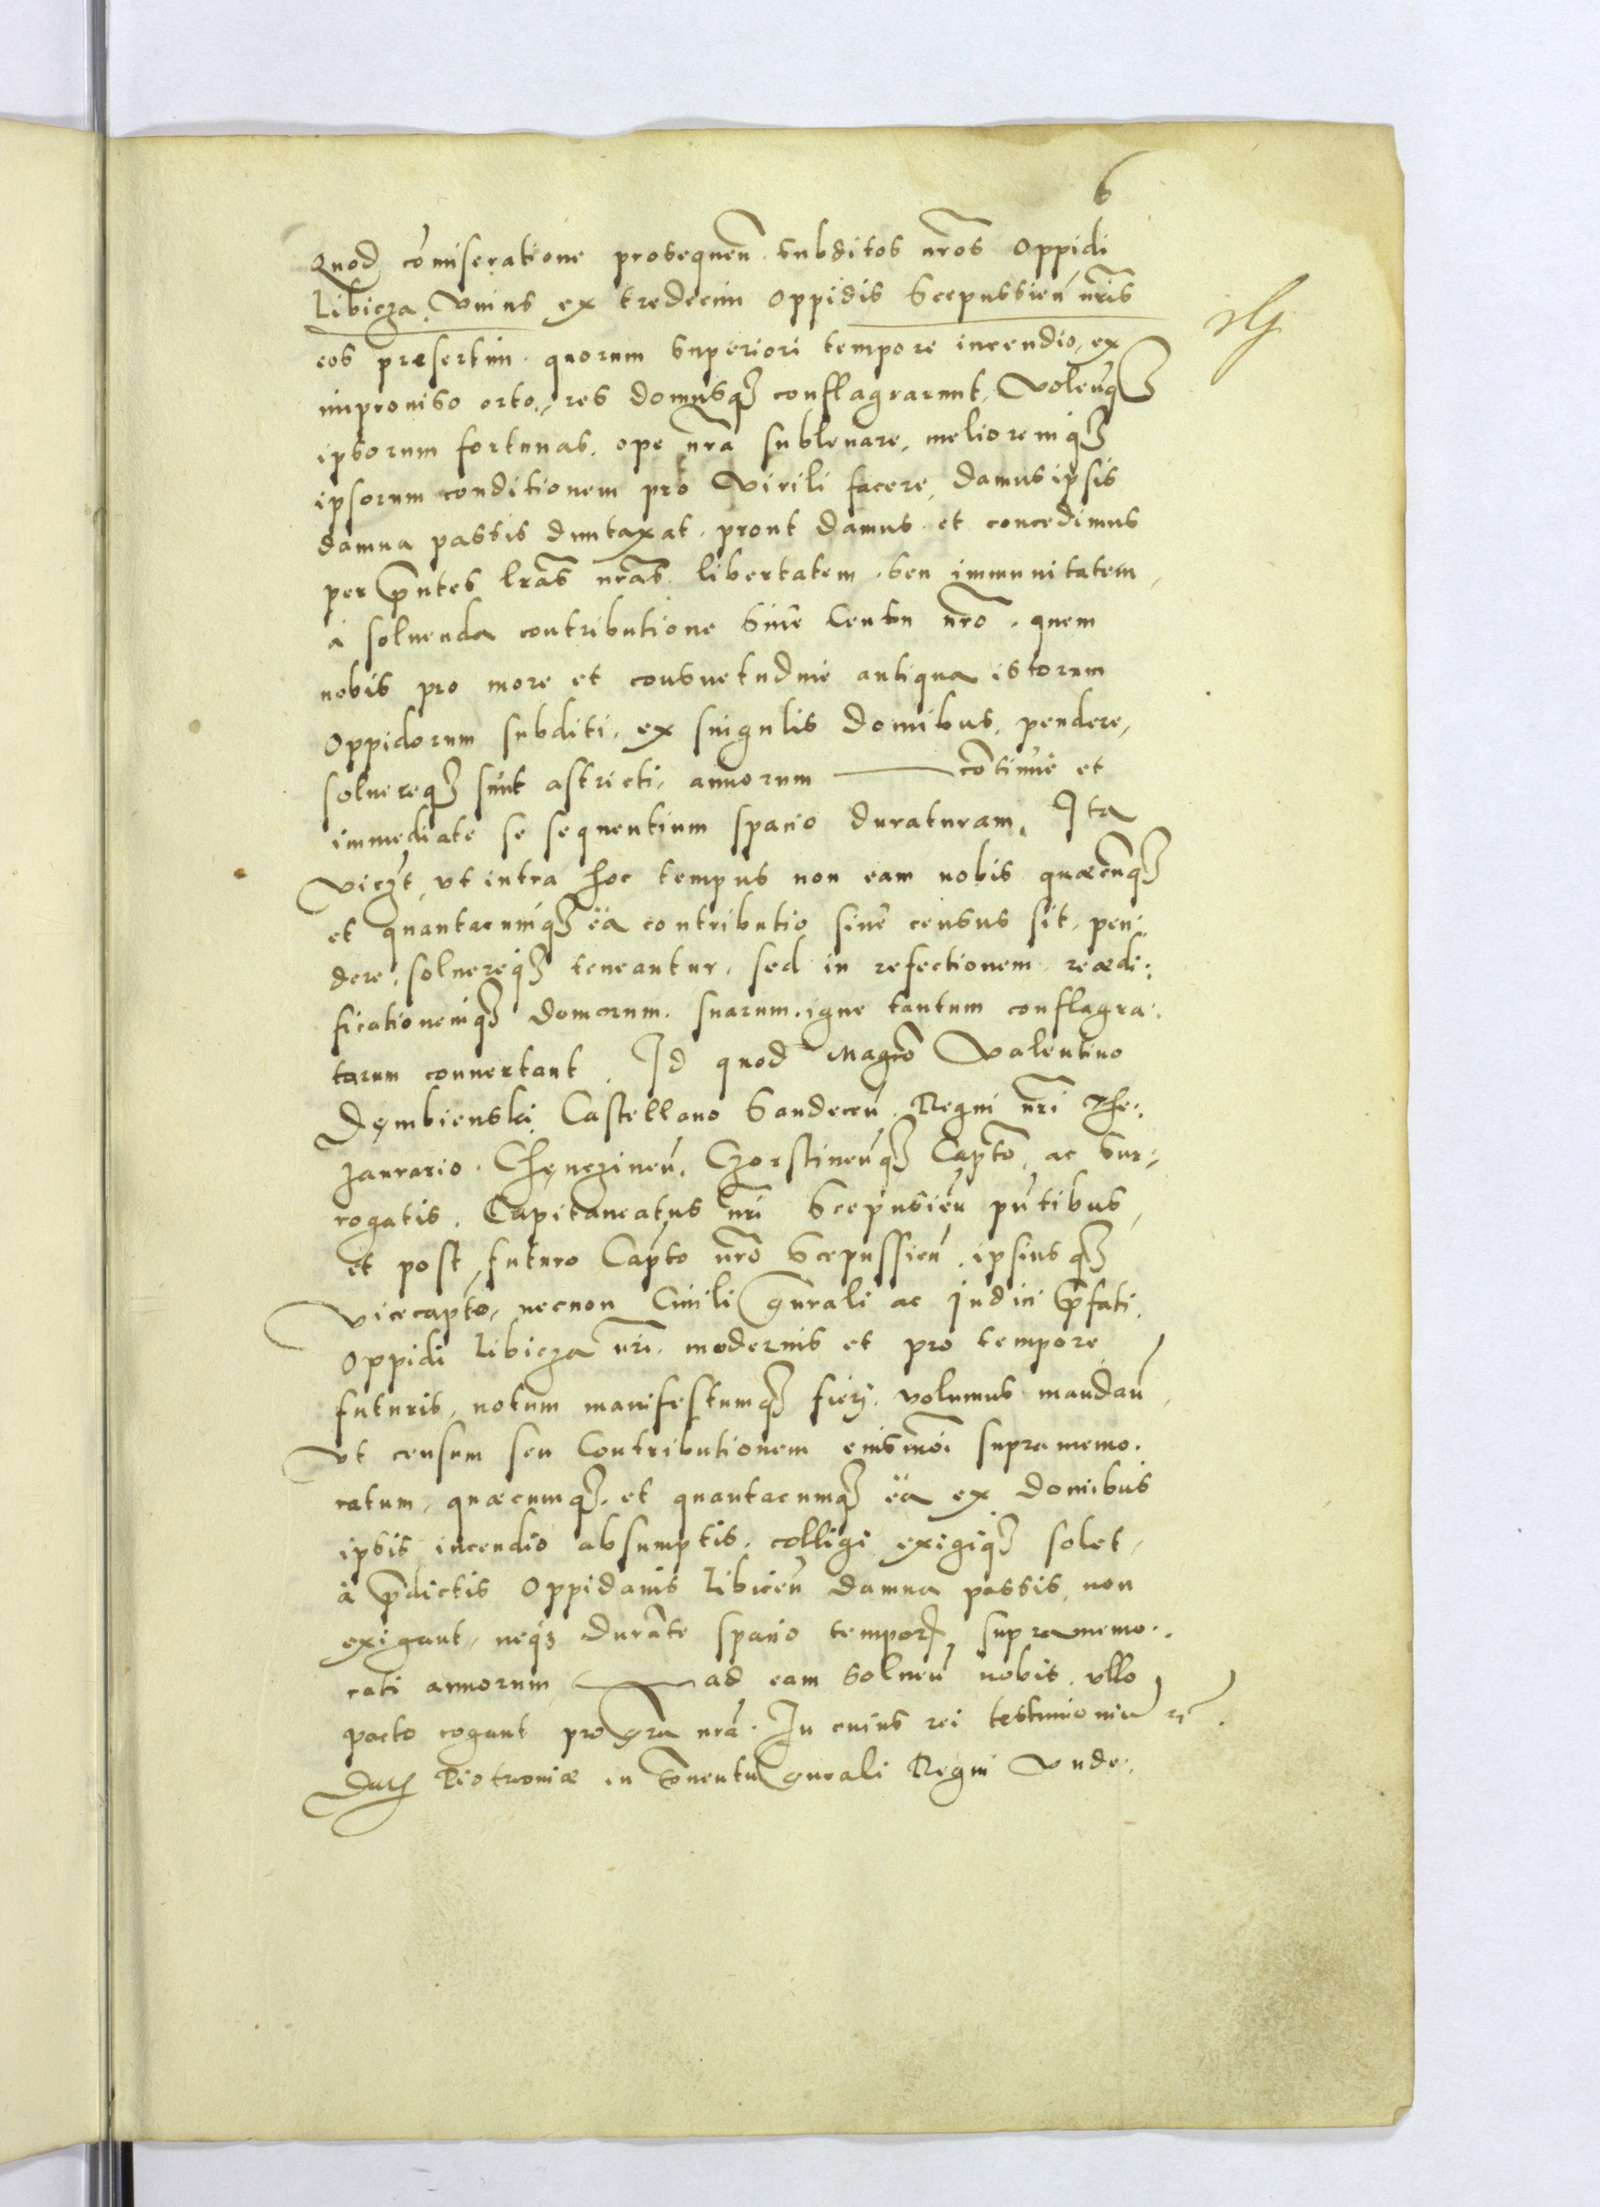 6
Quod co͂miseratione prosequen͂ subditos nr͂os Oppidi
Libicza, Vnius ex tredecim Oppidis Scepussien͂ nr͂is
eos præsertim, quorum superiori tempore incendio, ex
improuiso orto, res domusq₃ conflagrarunt, Volen͂q₃
ipsorum fortunas, ope nr͂a subleuare, melioremq₃
ipsorum conditionem pro Virili facere, damus ipsis
damna passis duntaxat, prout damus et concedimus
per pn͂tes lr͂as nr͂as, libertatem, seu immunitatem,
à soluenda contributione siue Censu nr͂o, quem
nobis pro more et consuetudine antiqua istorum
Oppidorum subditi, ex singulis domibus, pendere,
soluereq₃ sunt astricti, annorum — co͂tinuè et
immediate se sequentium spacio duraturam, Ita
viczt, vt intra hoc tempus non eam nobis quæcu͂q₃
et quantacumq₃ ea contributio siue census sit, pen:
dere, soluereq₃ teneantur, sed in refectionem reædi:
ficationemq₃ domorum suarum igne tantum conflagra:
tarum conuertant. Id quod Magco Valentino
Dembienski Castellano Sandecen͂, Regni nr͂i The:
zaurario, Chęnczinen͂, Czorstinen͂q₃ Capto͂, ac sur:
rogatis, Capitaneatus nr͂i Scepusien͂ pn͂tibus,
et post futuro Capto͂ nr͂o Scepussien͂, ipsiusq₃
vicecapto͂, necnon Ciuili gn͂rali ac Judici pr͂fati
Oppidi Libicza nr͂i, modernis et pro tempore
futuris, notum manifestumq₃ fieri volumus mandan͂,
Vt censum seu Contributionem eiusmo͂i supramemo:
ratum, quæcumq₃ et quantacumq₃ ea ex domibus
ipsis incendio absumptis, colligi exigiq₃ solet,
à pr͂dictis Oppidanis Libicen͂ damna passis, non
exigant, neq₃ dura͂te spacio tempor͂ supramemo:
rati annorum — ad eam soluen͂ nobis vllo
pacto cogant pro gra͂ nr͂a. In cuius rei testimoniu͂ rc͂.
Dat͂ Piotrcouiæ in conuentu gn͂rali Regni Vnde: